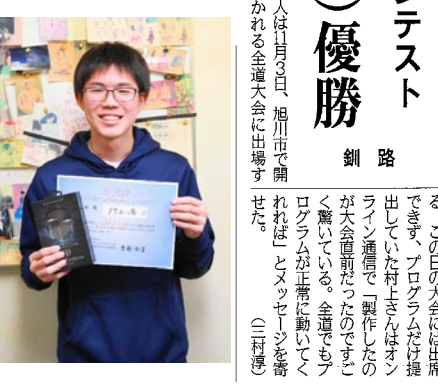 テスト
優勝
釧路
人は11月3日、旭川市で開
かれる全道大会に出場す
る。この日の大会には出席
できず、プログラムだけ提
出していた村上さんはオン
ライン通信で「製作したの
が大会直前だったのですご
く驚いている。全道でもプ
ログラムが正常に動いてく
れれば」とメッセージを寄
せた。（三村淳）